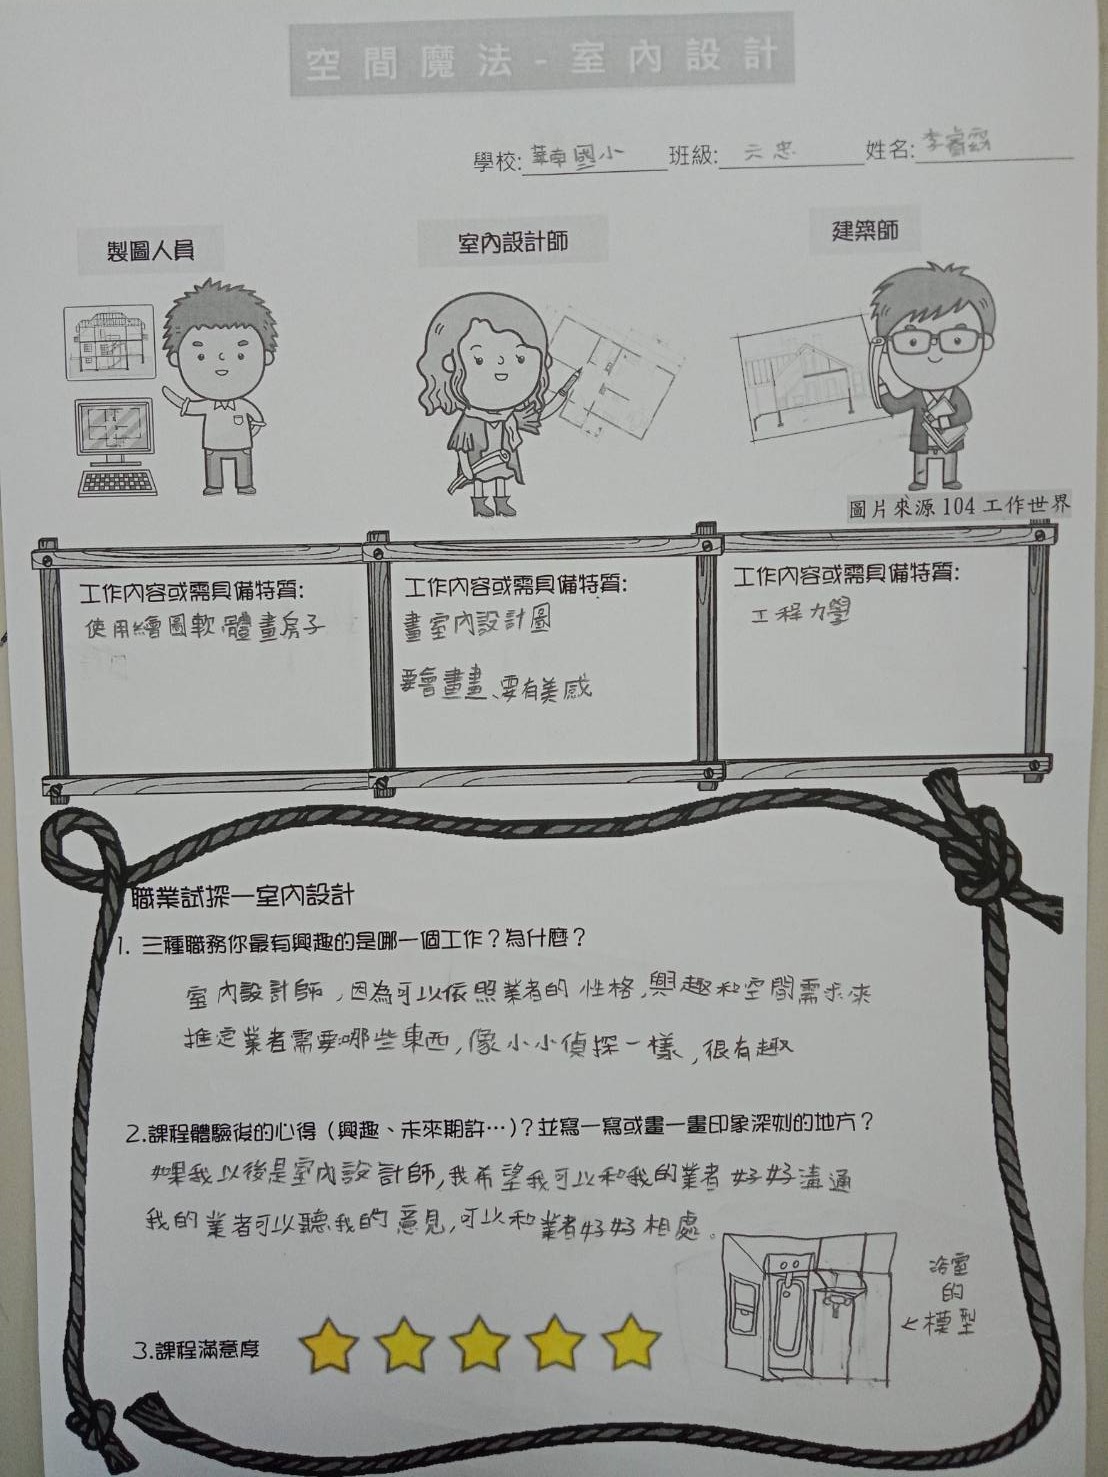 空間魔法-室內設計
學校: 華南國小 班級: 六忠 姓名: 李睿
製圖人員
室內設計師
建築師
圖片來源 104 工作世界
工作內容或需具備特質:
使用繪圖軟體畫房子
工作內容或需具備特質:
畫室內設計圖
要會畫畫、要有美感
工作內容或需具備特質:
工程力學
職業試探—室內設計
1. 三種職務你最有興趣的是哪一個工作？為什麼？
室內設計師,因為可以依照業者的性格,興趣和空間需求來
推定業者需要哪些東西,像小小偵探一樣,很有趣
2.課程體驗後的心得（興趣、未來期許…）？並寫一寫或畫一畫印象深刻的地方？
如果我以後是室內設計師,我希望我可以和我的業者好好溝通
我的業者可以聽我的意見,可以和業者好好相處。
浴室
的
←模型
3.課程滿意度